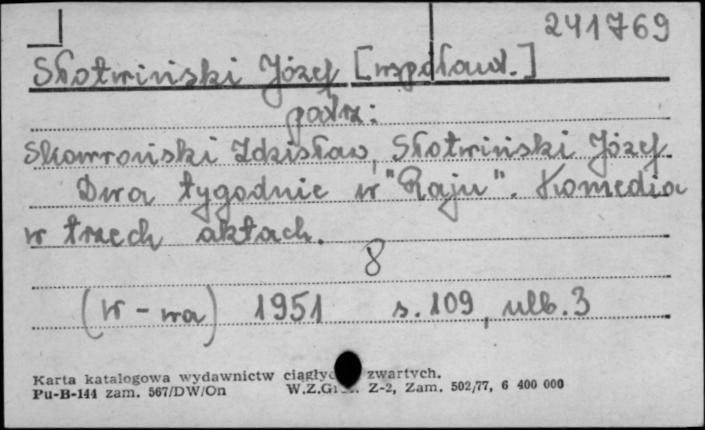 241769
Słotwiński Józef [współaut.]
patrz:
Skowroński Zdzisław, Słotwiński Józef
Dwa tygodnie w "Raju". Komedia
w trzech aktach.
8
(W-wa) 1951 s. 109, nlb. 3
Karta katalogowa wydawnictw zwartych.
Pu-B-144 zam. 567/DW/On Z-2, Zam. 502/77, 6 400 000